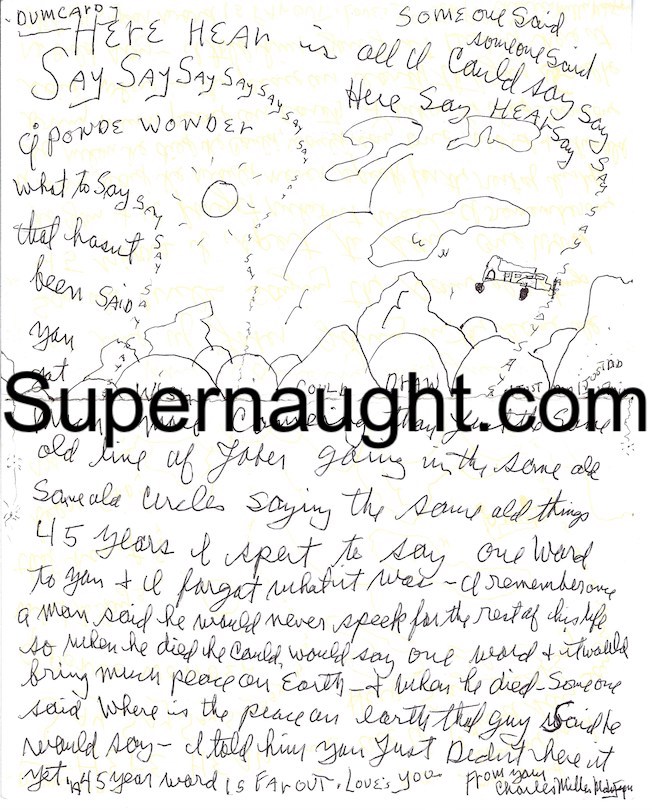 DUMCARD
HERE HEAR is all I Could say say
Someone Said
someone said
SAY SAY SAY SAY SAY SAY SAY SAY
Here Say HEAr Say
PONDE WONDER
what to Say SAY
that hasn't
been SAID
you
get
COULD DRAW
Supernaught.com
than just the Same
old line of going in the same old
Same old circles saying the same old things
45 years I spert to say one Word
to you + I forgot what it was - I remember one
a man said he would never speek for the rest of his life
so when he died he could, would say one word + it would
bring much peace on Earth - + when he died - Someone
said Where is the peace on earth that guy Said he
would say - I told him you Just Dident here it
yet 45 year word is FAr OUT. Love's you
From your
Charles Miller